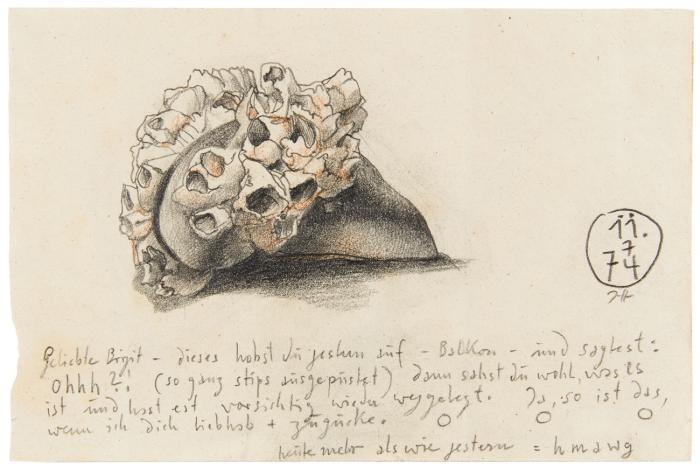 11.
7
74
JH
Geliebte Birgit – dieses hobst du jestern auf – Balkon – und sagtest:
Ohhh?! (so ganz stips ausgepustet) dann sahst du wohl, was's
ist und hast est vorsichtig wieder weggelegt. Ja, so ist das,
wenn ich dich liebhob + zugücke.
heute mehr als wie jestern = hmawg